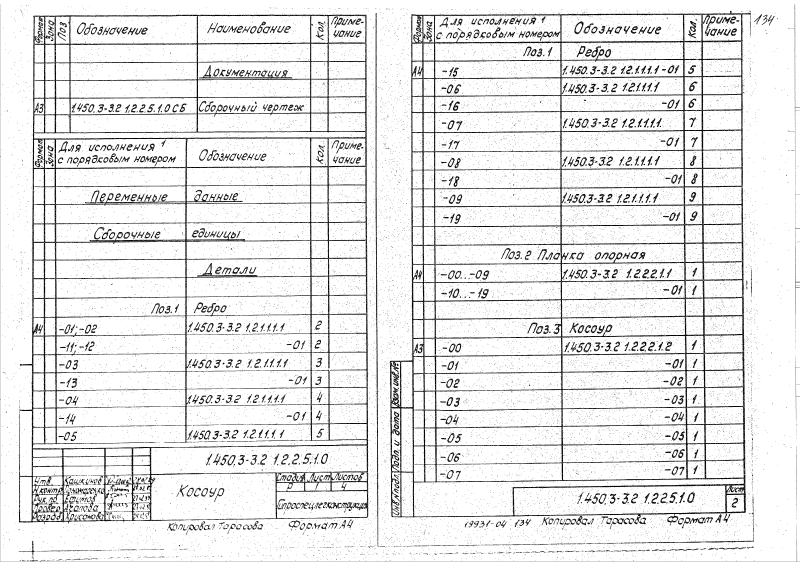 Формат Зона Поз. Обозначение Наименование Кол. Приме-чание
Документация
А3 1.450.3-3.2 1.2.2.5.1.0 СБ Сборочный чертеж
Формат Зона Для исполнения 1 с порядковым номером Обозначение Кол. Приме-чание
Переменные данные
Сборочные единицы
Детали
Поз.1 Ребро
А4 -01;-02 1.450.3-3.2 1.2.1.1.1.1 2
-11;-12 -01 2
-03 1.450.3-3.2 1.2.1.1.1.1 3
-13 -01 3
-04 1.450.3-3.2 1.2.1.1.1.1 4
-14 -01 4
-05 1.450.3-3.2 1.2.1.1.1.1 5
1.450.3-3.2 1.2.2.5.1.0
Утв. Кашкинов
Н.контр.
Рук.гр. Ефимов
Провер. Агапова
Разраб. Хрисанова
Косоур
Стадия Лист Листов
Р 4
Гипроспецлегконструкция
Копировал Тарасова Формат А4
134
Формат Зона Для исполнения 1 с порядковым номером Обозначение Кол. Приме-чание
Поз.1 Ребро
А4 -15 1.450.3-3.2 1.2.1.1.1.1-01 5
-06 1.450.3-3.2 1.2.1.1.1.1 6
-16 -01 6
-07 1.450.3-3.2 1.2.1.1.1.1. 7
-17 -01 7
-08 1.450.3-3.2 1.2.1.1.1.1 8
-18 -01 8
-09 1.450.3-3.2 1.2.1.1.1.1 9
-19 -01 9
Поз.2 Планка опорная
А4 -00...-09 1.450.3-3.2 1.2.2.2.1.1 1
-10...-19 -01 1
Поз.3 Косоур
А3 -00 1.450.3-3.2 1.2.2.2.1.2 1
-01 -01 1
-02 -02 1
-03 -03 1
-04 -04 1
-05 -05 1
-06 -06 1
-07 -07 1
Инв.№подл. Подп. и дата Взам.инв.№
1.450.3-3.2 1.2.2.5.1.0
Лист
2
19931-04 134 Копировал Тарасова Формат А4